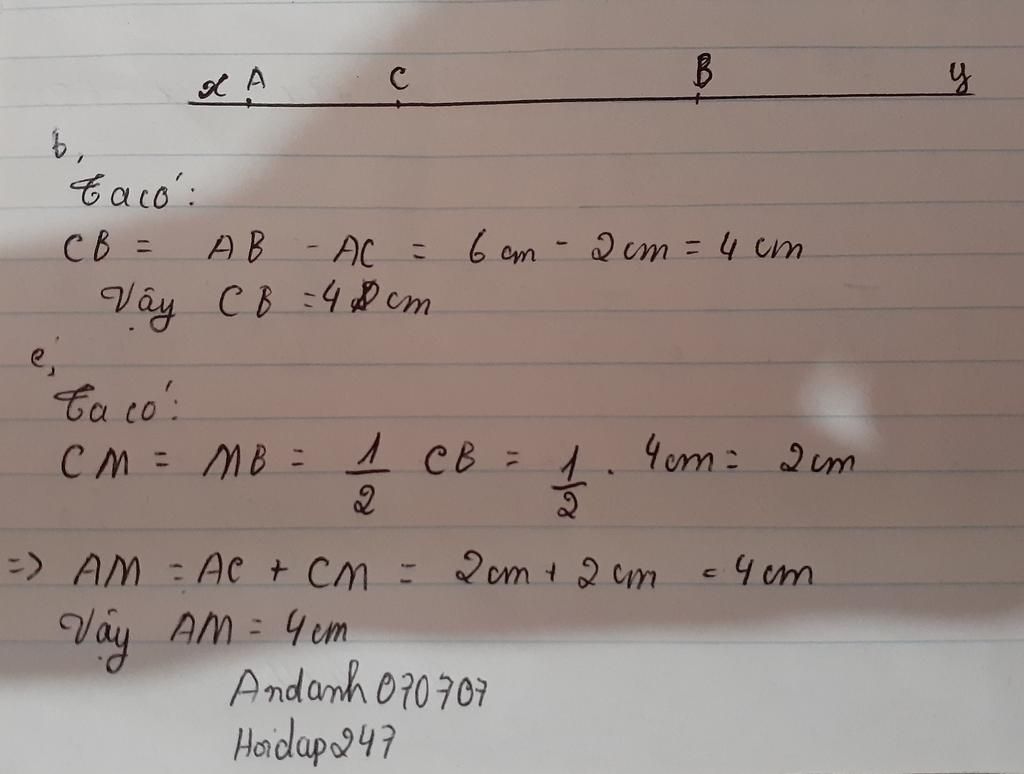 x A C B y
b,
Ta có:
CB = AB - AC = 6 cm - 2 cm = 4 cm
Vậy CB = 4 cm
c,
Ta có:
CM = MB = 1/2 CB = 1/2 . 4cm = 2cm
=> AM = AC + CM = 2cm + 2cm = 4cm
Vậy AM = 4cm
Andanh070707
Hoidap247